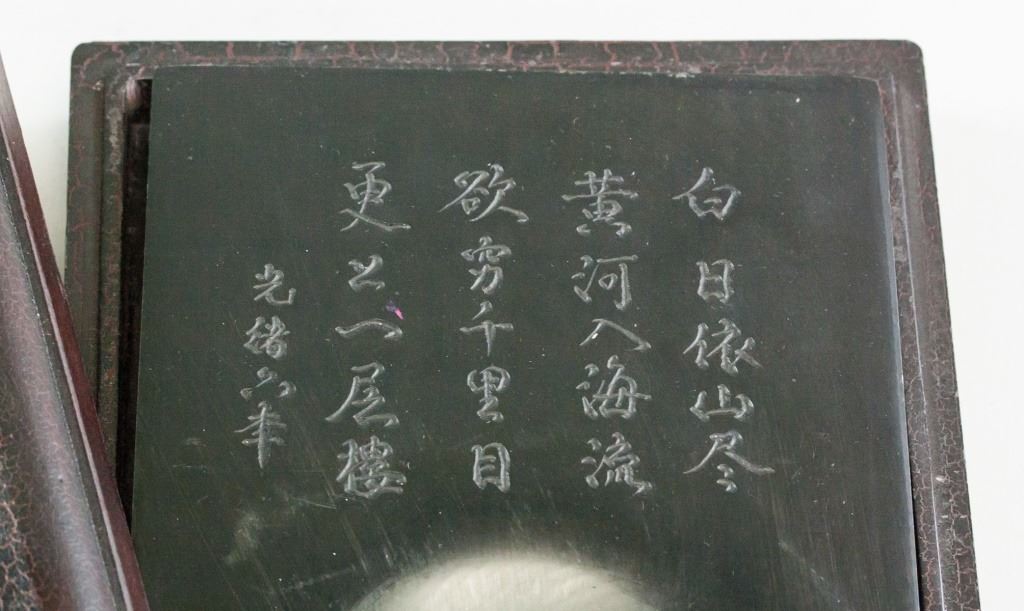 白日依山尽
黄河入海流
欲穷千里目
更上一层楼
光绪六年